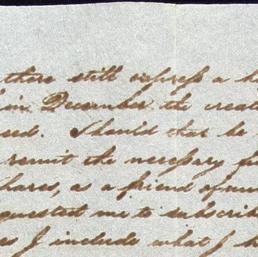 there still express a
in December the
Should that be
remit the necessary
shares, as a friend of
requested me to subscrib
I include what I h